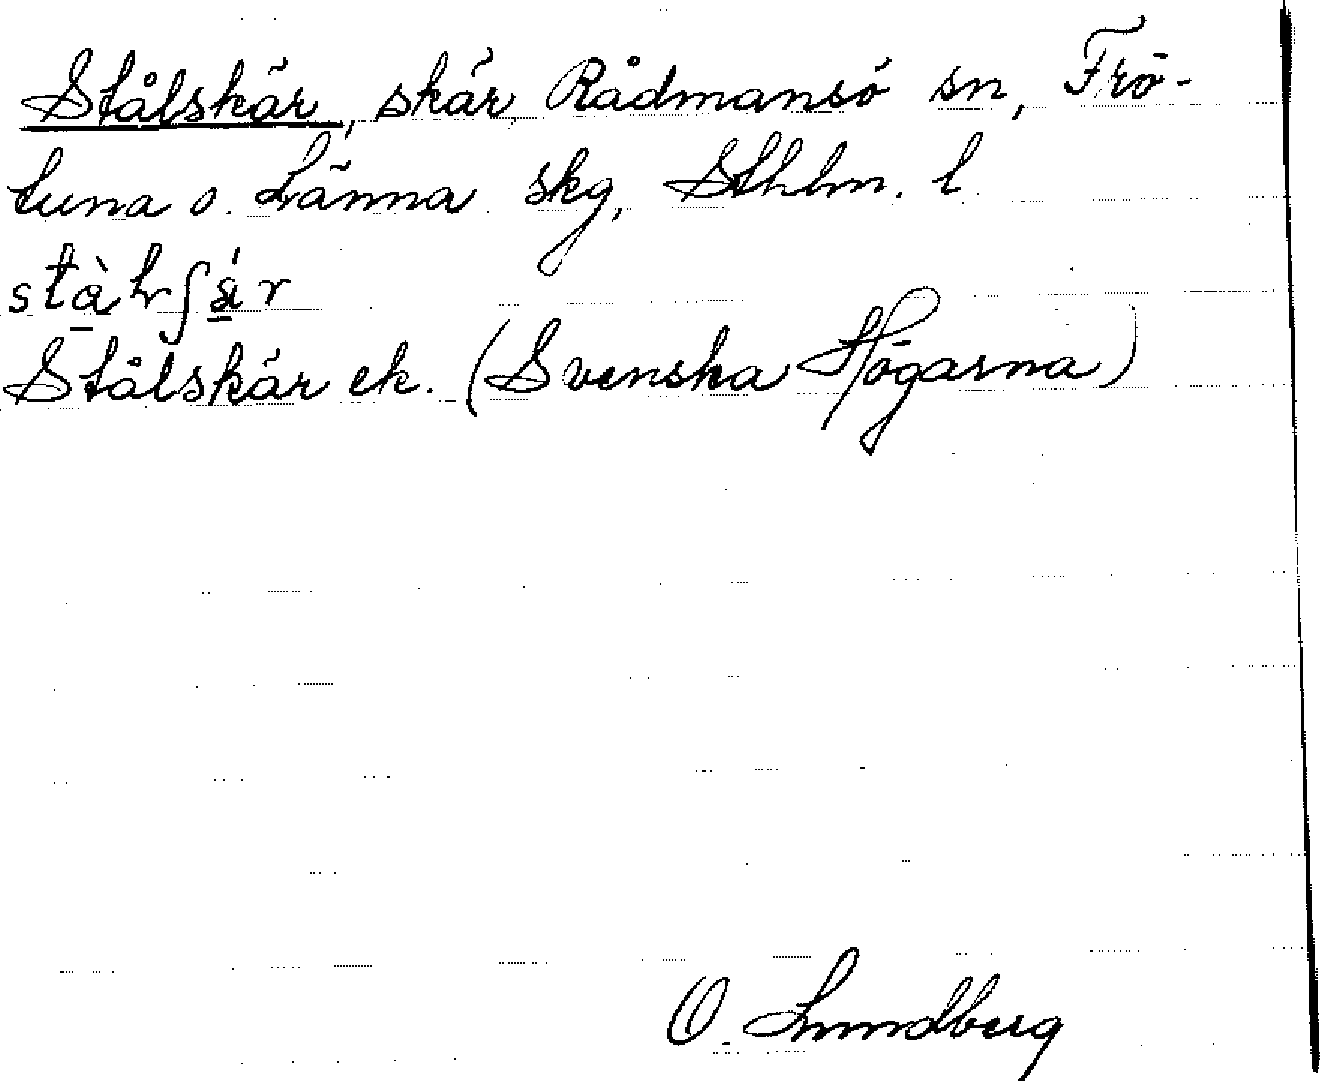 Stålskär, skär, Rådmansö sn, Frö-
tuna o. Länna skg, Sthlm. l.
Stålskär ek. (Svenska Högarna)
O. Lundberg